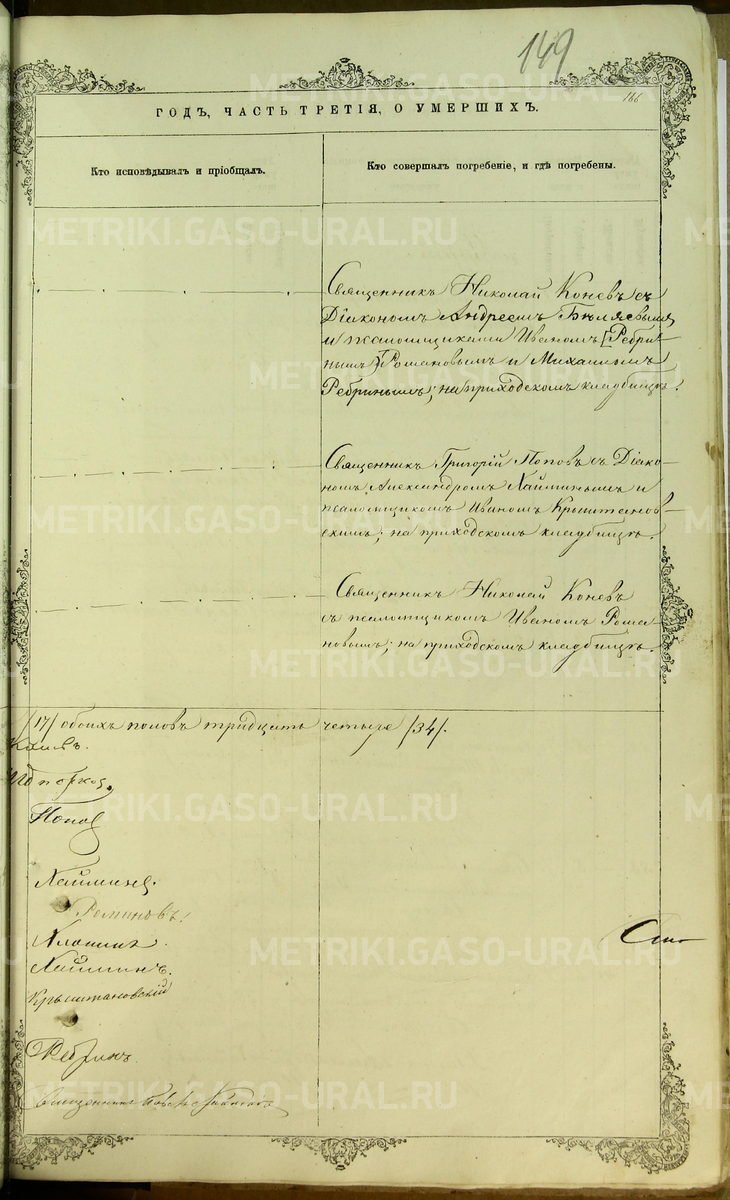 149
166
ГОДЪ, ЧАСТЬ ТРЕТІЯ, О УМЕРШИХЪ.
Кто исповѣдывалъ и пріобщалъ.
Кто совершалъ погребеніе, и гдѣ погребены.
Священникъ Николай Коневъ съ
Діакономъ Андреемъ Бѣляевымъ
и псаломщиками Иваномъ [Ребри-
нымъ] Романовымъ и Михаиломъ
Ребринымъ; на приходскомъ кладбищѣ.
Священникъ Григорій Поповъ съ Діако-
номъ Александромъ Хайминымъ и
псаломщикомъ Иваномъ Крыштанов-
скимъ; на приходскомъ кладбищѣ.
Священникъ Николай Коневъ
съ псаломщикомъ Иваномъ Рома-
новымъ; на приходскомъ кладбищѣ.
/17/ обоихъ половъ тридцать четыре /34/.
Поповъ
Хайминъ.
Хайминъ.
Крыштановскій
Ребринъ.
Священникъ
METRIKI.GASO-URAL.RU